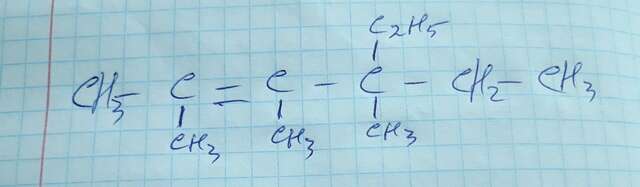 C2H5
CH3 - C = C - C - CH2 - CH3
CH3 CH3 CH3